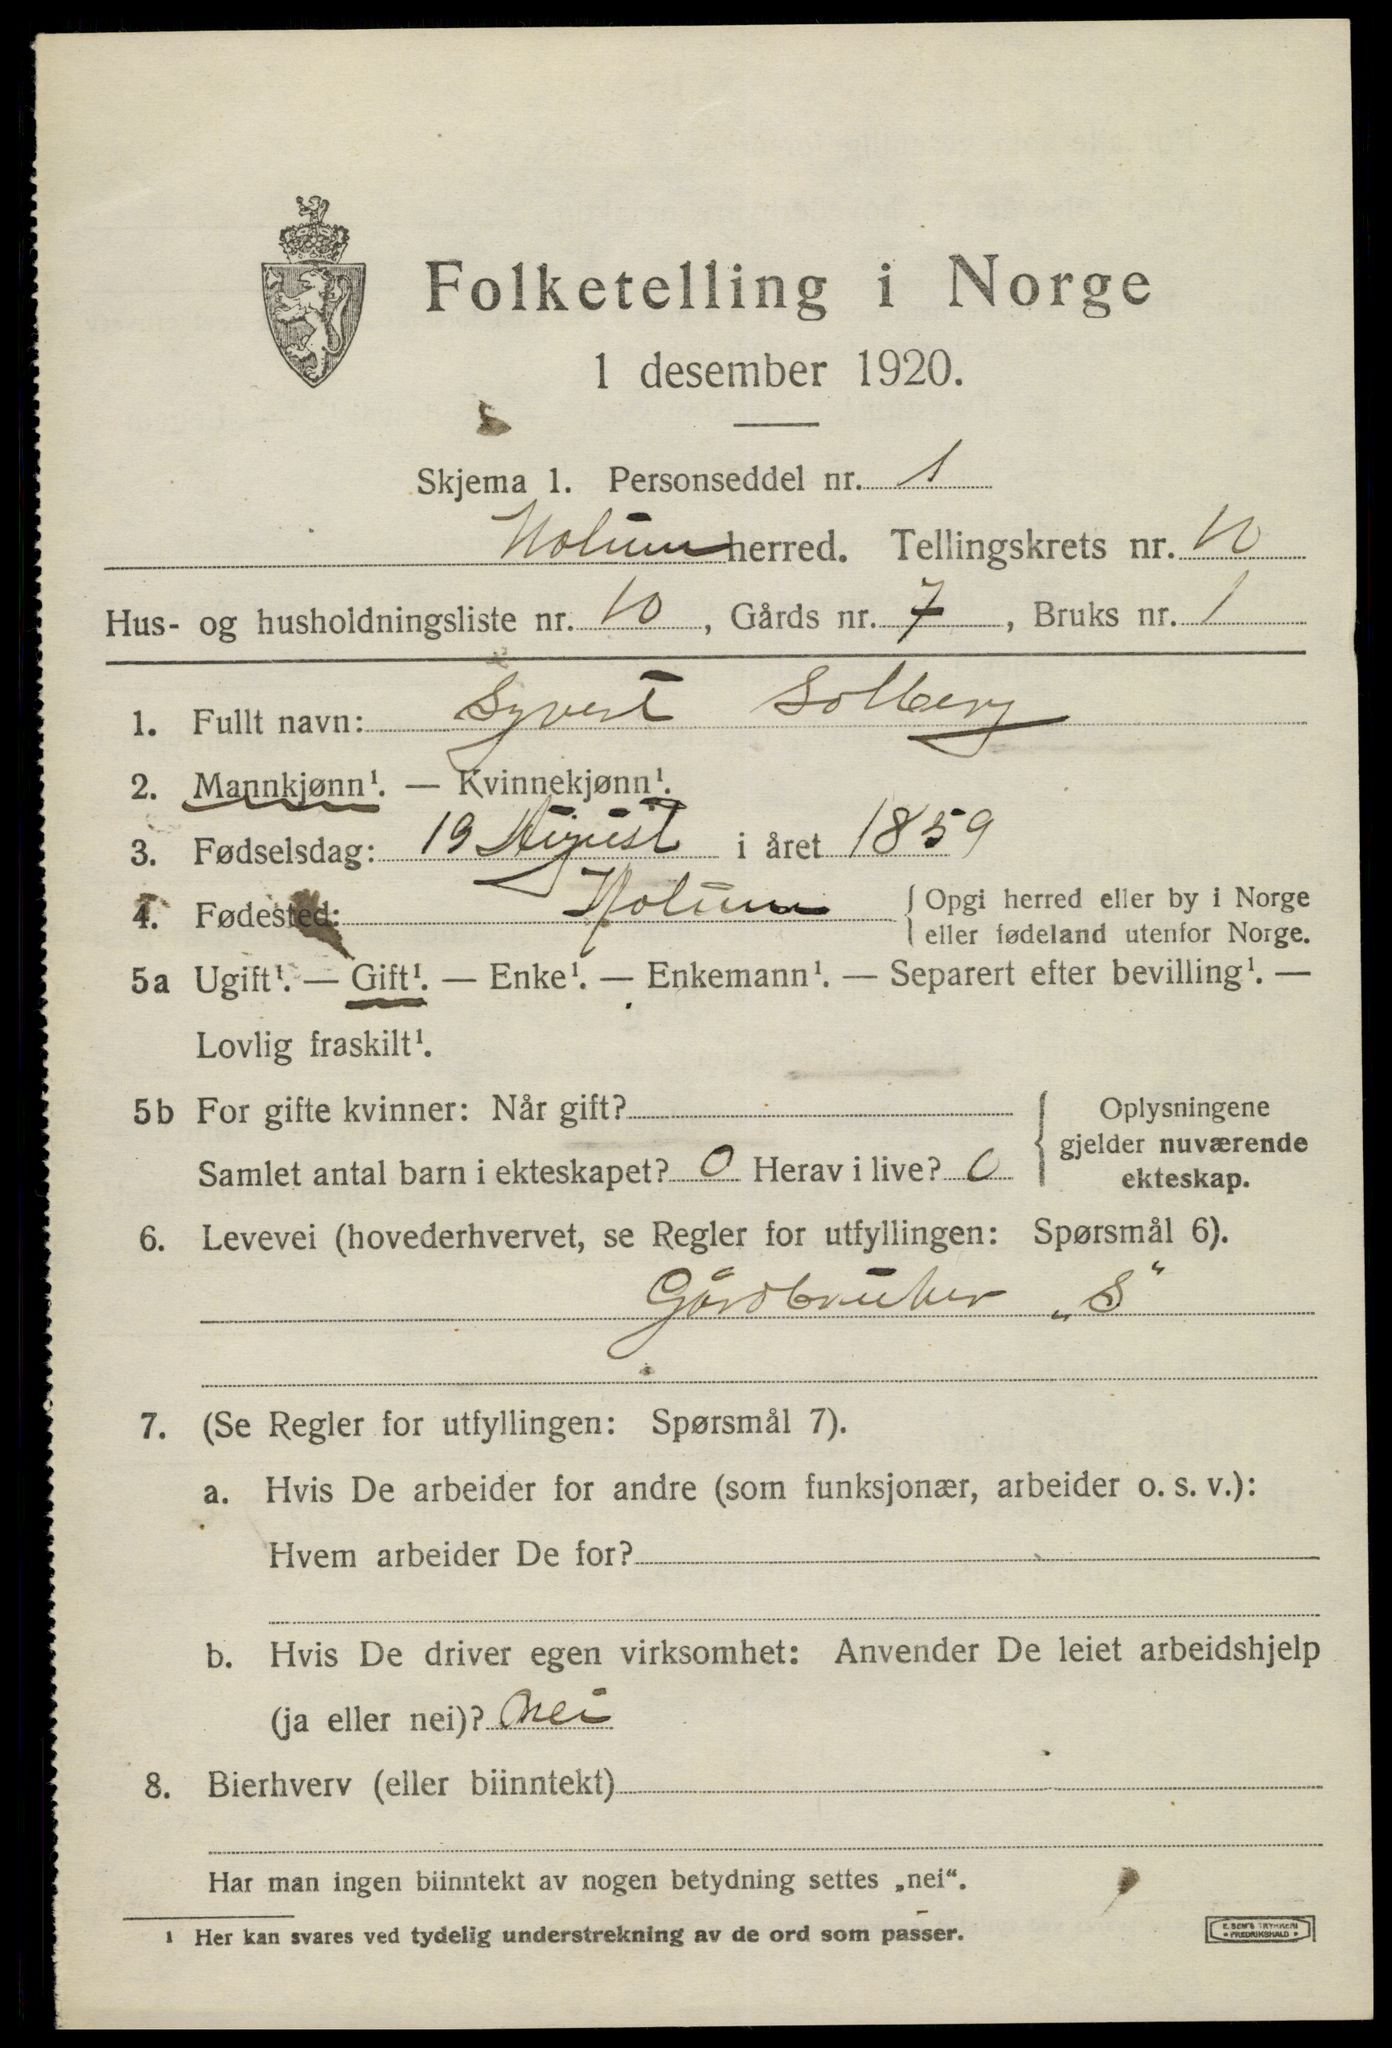 Folketelling i Norge
1 desember 1920.
Skjema 1. Personseddel nr. 1
Holum herred. Tellingskrets nr. 10
Hus- og husholdningsliste nr. 10, Gårds nr. 7, Bruks nr. 1
1. Fullt navn: Syvert Solberg
2. Mannkjønn¹. — Kvinnekjønn¹.
3. Fødselsdag: 19 August i året 1859
4. Fødested: Holum { Opgi herred eller by i Norge
eller fødeland utenfor Norge.
5a Ugift¹. — Gift¹. — Enke¹. — Enkemann¹. — Separert efter bevilling¹. —
Lovlig fraskilt¹.
5b For gifte kvinner: Når gift? { Oplysningene
gjelder nuværende
Samlet antal barn i ekteskapet? 0 Herav i live? 0 ekteskap.
6. Levevei (hovederhvervet, se Regler for utfyllingen: Spørsmål 6).
Gårdbruker „S“
7. (Se Regler for utfyllingen: Spørsmål 7).
a. Hvis De arbeider for andre (som funksjonær, arbeider o. s. v.):
Hvem arbeider De for?
b. Hvis De driver egen virksomhet: Anvender De leiet arbeidshjelp
(ja eller nei)? Nei
8. Bierhverv (eller biinntekt)
Har man ingen biinntekt av nogen betydning settes „nei“.
¹ Her kan svares ved tydelig understrekning av de ord som passer.
E. SEM'S TRYKKERI
* FREDRIKSHALD *